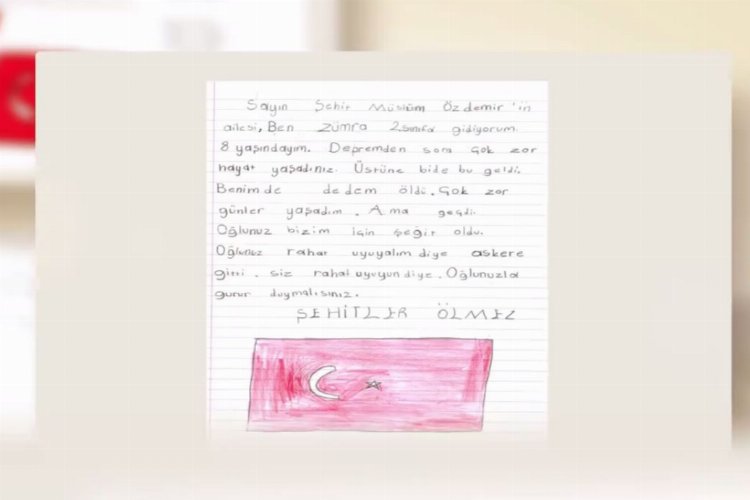 Sayın Şehit Müslüm Özdemir'in
ailesi, Ben Zümra 2.sınıfa gidiyorum.
8 yaşındayım. Depremden sora çok zor
hayat yaşadınız. Üstüne bide bu geldi.
Benimde dedem öldü. Çok zor
günler yaşadım. Ama geçdi.
Oğlunuz bizim için şeğit oldu.
Oğlunuz rahat uyuyalım diye askere
gitti. siz rahat uyuyun diye. Oğlunuzla
gurur duymalısınız.
ŞEHİTLER ÖLMEZ